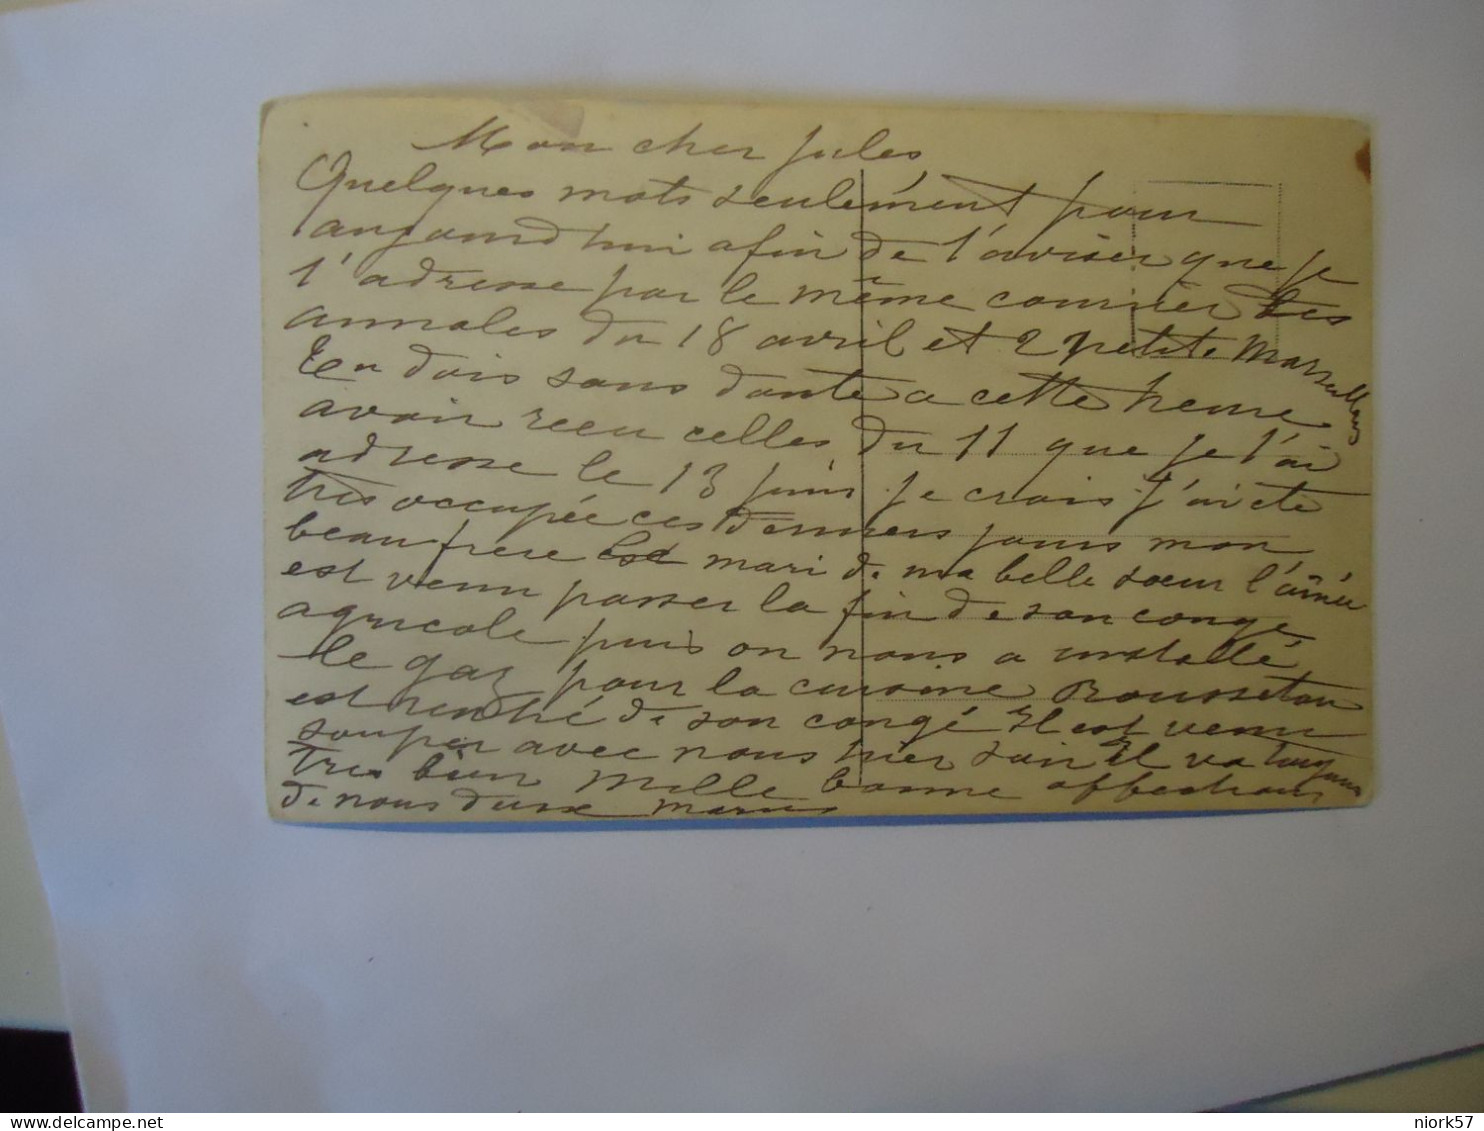 Mon cher Jules
Quelques mots seulement pour
aujourd'hui afin de t'aviser que je
t'adresse par le même courrier les
annales du 18 avril et 2 petits Marseillais
Tu dois sans doute a cette heure
avoir recu celles du 11 que je t'ai
adresse le 13 juin je crois. J'ai été
très occupée ces derniers jours mon
beau frere le mari de ma belle soeur l'ainée
est venu passer la fin de son conge
agricole puis on nous a installé
le gaz pour la cuisine Roussetou
est rentré de son congé Il est venu
souper avec nous hier soir Il va toujours
très bien Mille bonne affections
de nous deux
niork57